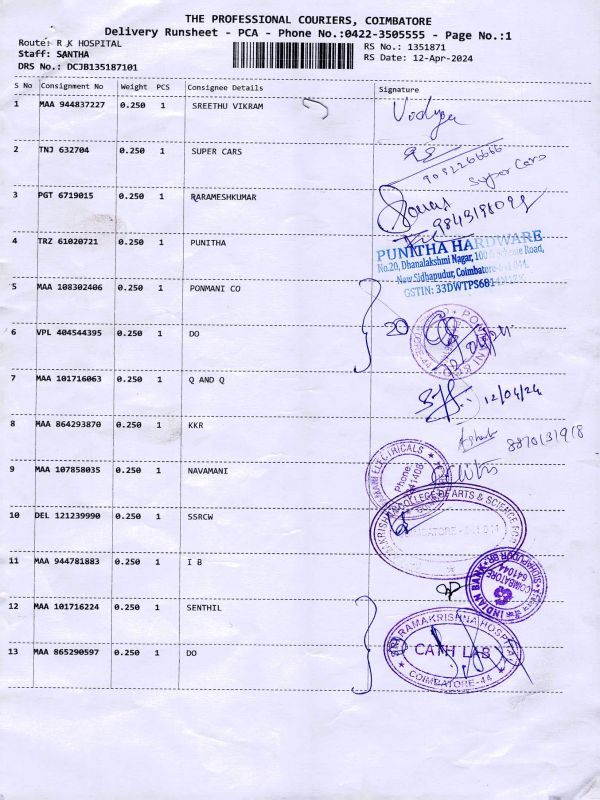 THE PROFESSIONAL COURIERS, COIMBATORE
Delivery Runsheet - PCA - Phone No.:0422-3505555 - Page No.:1
Route: R K HOSPITAL
Staff: SANTHA
DRS No.: DCJB135187101
RS No.: 1351871
RS Date: 12-Apr-2024
S No Consignment No Weight PCS Consignee Details Signature
1 MAA 944837227 0.250 1 SREETHU VIKRAM
2 TNJ 632704 0.250 1 SUPER CARS
9092266666
Super Cars
3 PGT 6719015 0.250 1 RARAMESHKUMAR
4 TRZ 61020721 0.250 1 PUNITHA
PUNITHA HARDWARE
No.20, Dhanalakshmi Nagar, 100 ft Scheme Road,
New Sidhapudur, Coimbatore-641 044.
GSTIN: 33DWTPS6814
5 MAA 108302406 0.250 1 PONMANI CO
20
6 VPL 404544395 0.250 1 DO
7 MAA 101716063 0.250 1 Q AND Q
12/04/24
8 MAA 864293870 0.250 1 KKR
9 MAA 107858035 0.250 1 NAVAMANI
ELECTRICALS
Phone:
10 DEL 121239990 0.250 1 SSRCW
COLLEGE OF ARTS & SCIENCE
11 MAA 944781883 0.250 1 I B
INDIAN BANK
COIMBATORE
641044
12 MAA 101716224 0.250 1 SENTHIL
13 MAA 865290597 0.250 1 DO
SRI RAMAKRISHNA HOSPITAL
CATH LAB
COIMBATORE-44